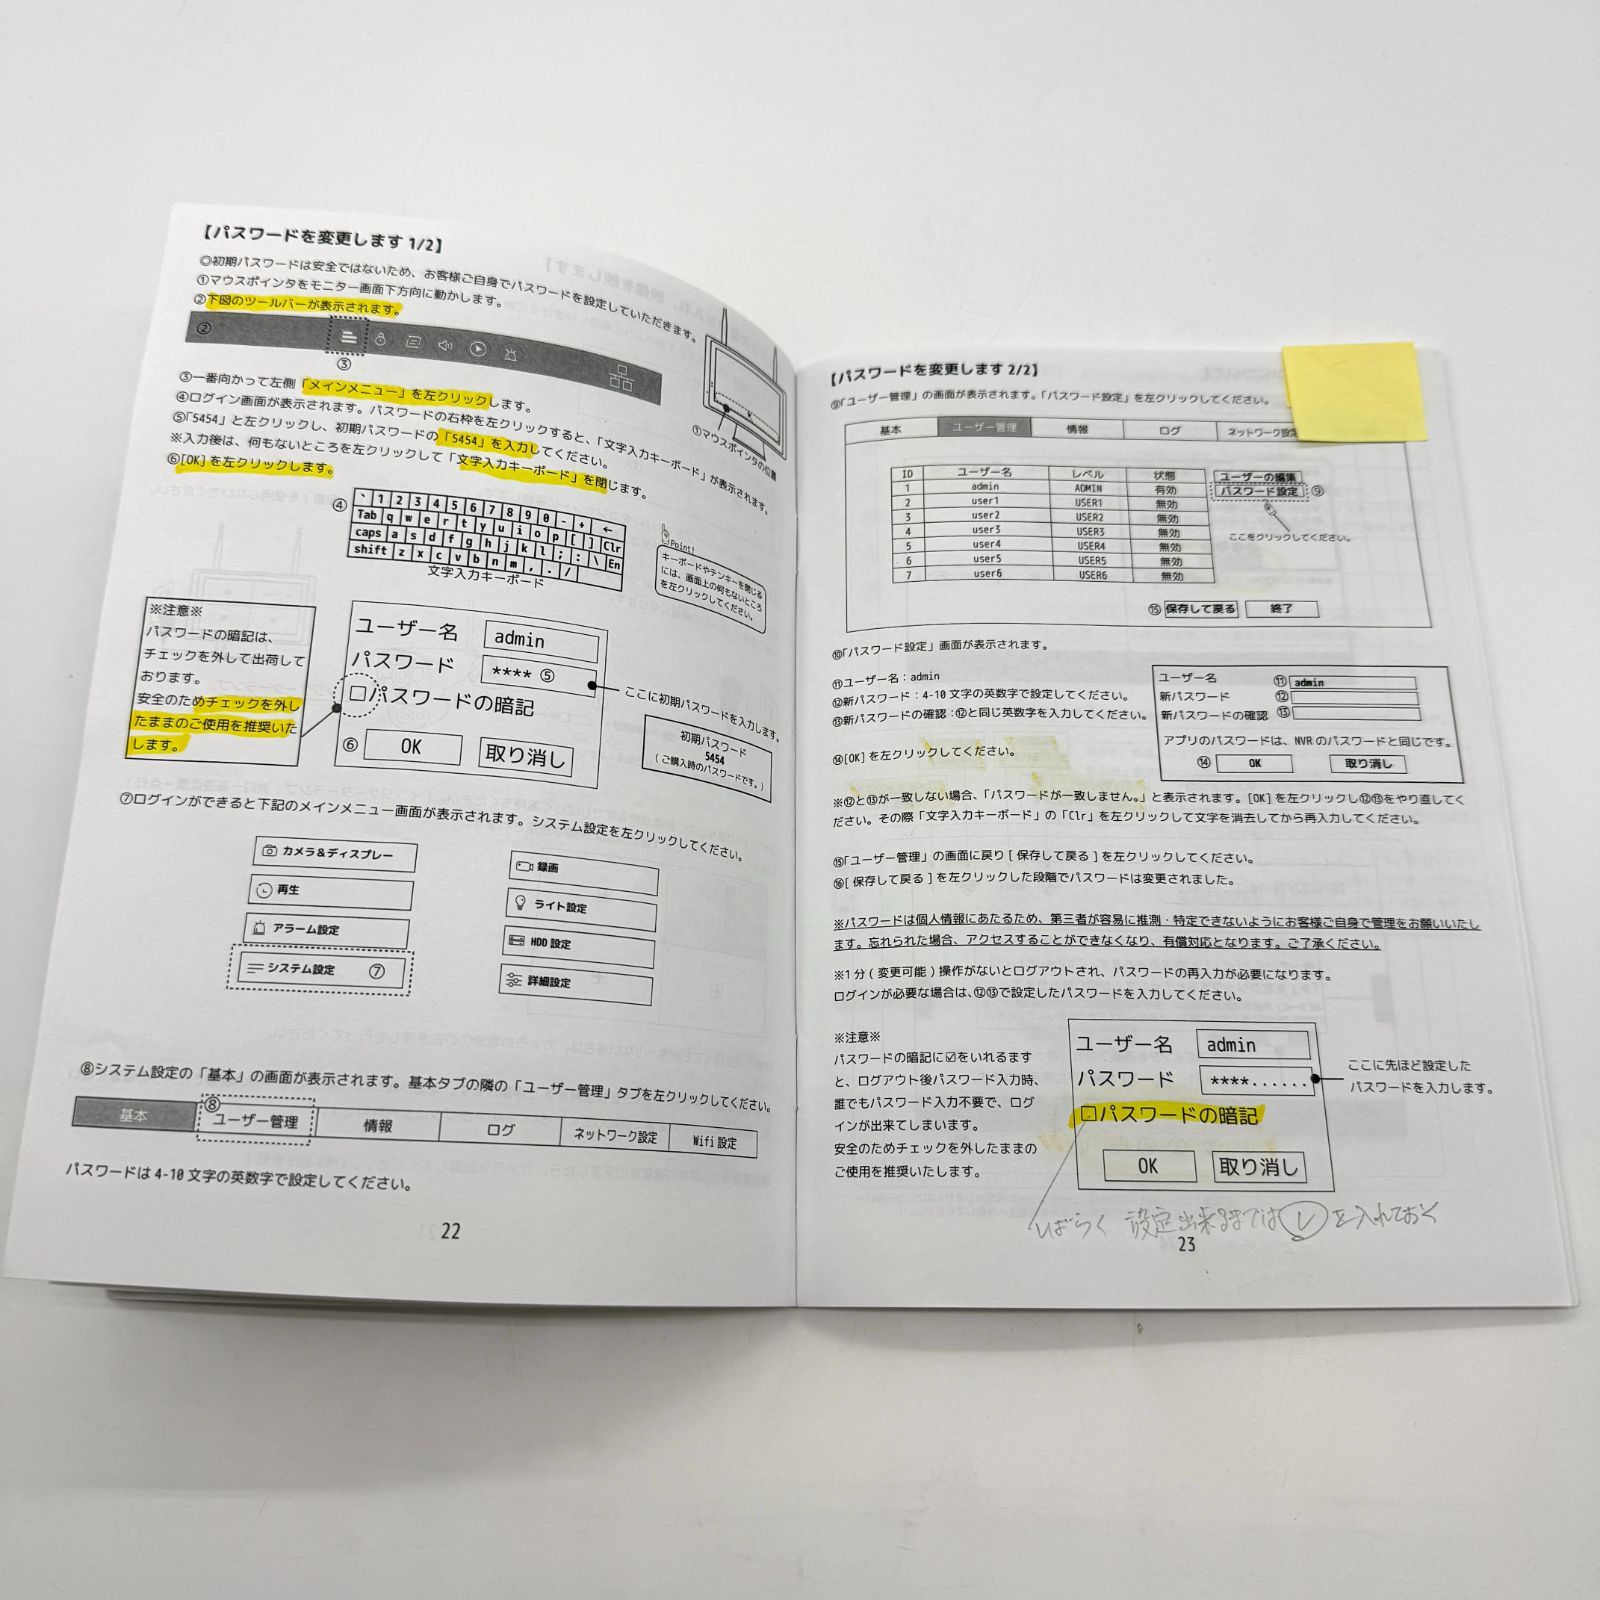 【パスワードを変更します 1/2】
◎初期パスワードは安全ではないため、お客様ご自身でパスワードを設定していただきます。
①マウスポインタをモニター画面下方向に動かします。
②下図のツールバーが表示されます。
②
③
①マウスポインタの位置
③一番向かって左側「メインメニュー」を左クリックします。
④ログイン画面が表示されます。パスワードの右枠を左クリックすると、「文字入力キーボード」が表示されます。
⑤「5454」と左クリックし、初期パスワードの「5454」を入力してください。
※入力後は、何もないところを左クリックして「文字入力キーボード」を閉じます。
⑥[OK]を左クリックします。
④
` 1 2 3 4 5 6 7 8 9 0 - + ←
Tab q w e r t y u i o p [ ] Clr
caps a s d f g h j k l ; : \ En
shift z x c v b n m , . /
文字入力キーボード
Point!
キーボードやテンキーを閉じる
には、画面上の何もないところ
を左クリックしてください。
※注意※
パスワードの暗記は、
チェックを外して出荷して
おります。
安全のためチェックを外し
たままのご使用を推奨いた
します。
ユーザー名 admin
パスワード **** ⑤
□パスワードの暗記
⑥ OK 取り消し
ここに初期パスワードを入力します。
初期パスワード
5454
(ご購入時のパスワードです。)
⑦ログインができると下記のメインメニュー画面が表示されます。システム設定を左クリックしてください。
カメラ&ディスプレー
再生
アラーム設定
システム設定 ⑦
録画
ライト設定
HDD 設定
詳細設定
⑧システム設定の「基本」の画面が表示されます。基本タブの隣の「ユーザー管理」タブを左クリックしてください。
⑧
基本 ユーザー管理 情報 ログ ネットワーク設定 Wifi 設定
パスワードは 4-10 文字の英数字で設定してください。
22
【パスワードを変更します 2/2】
⑨「ユーザー管理」の画面が表示されます。「パスワード設定」を左クリックしてください。
基本 ユーザー管理 情報 ログ ネットワーク設定
ID ユーザー名 レベル 状態
1 admin ADMIN 有効
2 user1 USER1 無効
3 user2 USER2 無効
4 user3 USER3 無効
5 user4 USER4 無効
6 user5 USER5 無効
7 user6 USER6 無効
ユーザーの編集
パスワード設定 ⑨
ここをクリックしてください。
⑮ 保存して戻る 終了
⑩「パスワード設定」画面が表示されます。
⑪ユーザー名：admin
⑫新パスワード：4-10 文字の英数字で設定してください。
⑬新パスワードの確認：⑫と同じ英数字を入力してください。
⑭[OK] を左クリックしてください。
ユーザー名 ⑪ admin
新パスワード ⑫
新パスワードの確認 ⑬
アプリのパスワードは、NVR のパスワードと同じです。
⑭ OK 取り消し
※⑫と⑬が一致しない場合、「パスワードが一致しません。」と表示されます。[OK] を左クリックし⑫⑬をやり直してく
ださい。その際「文字入力キーボード」の「Clr」を左クリックして文字を消去してから再入力してください。
⑮「ユーザー管理」の画面に戻り [ 保存して戻る ] を左クリックしてください。
⑯[ 保存して戻る ] を左クリックした段階でパスワードは変更されました。
※パスワードは個人情報にあたるため、第三者が容易に推測・特定できないようにお客様ご自身で管理をお願いいたし
ます。忘れられた場合、アクセスすることができなくなり、有償対応となります。ご了承ください。
※1 分 ( 変更可能 ) 操作がないとログアウトされ、パスワードの再入力が必要になります。
ログインが必要な場合は、⑫⑬で設定したパスワードを入力してください。
※注意※
パスワードの暗記に☑をいれるます
と、ログアウト後パスワード入力時、
誰でもパスワード入力不要で、ログ
インが出来てしまいます。
安全のためチェックを外したままの
ご使用を推奨いたします。
ユーザー名 admin
パスワード ****......
□パスワードの暗記
OK 取り消し
ここに先ほど設定した
パスワードを入力します。
しばらく 設定出来るまでは ✓ を入れておく
23